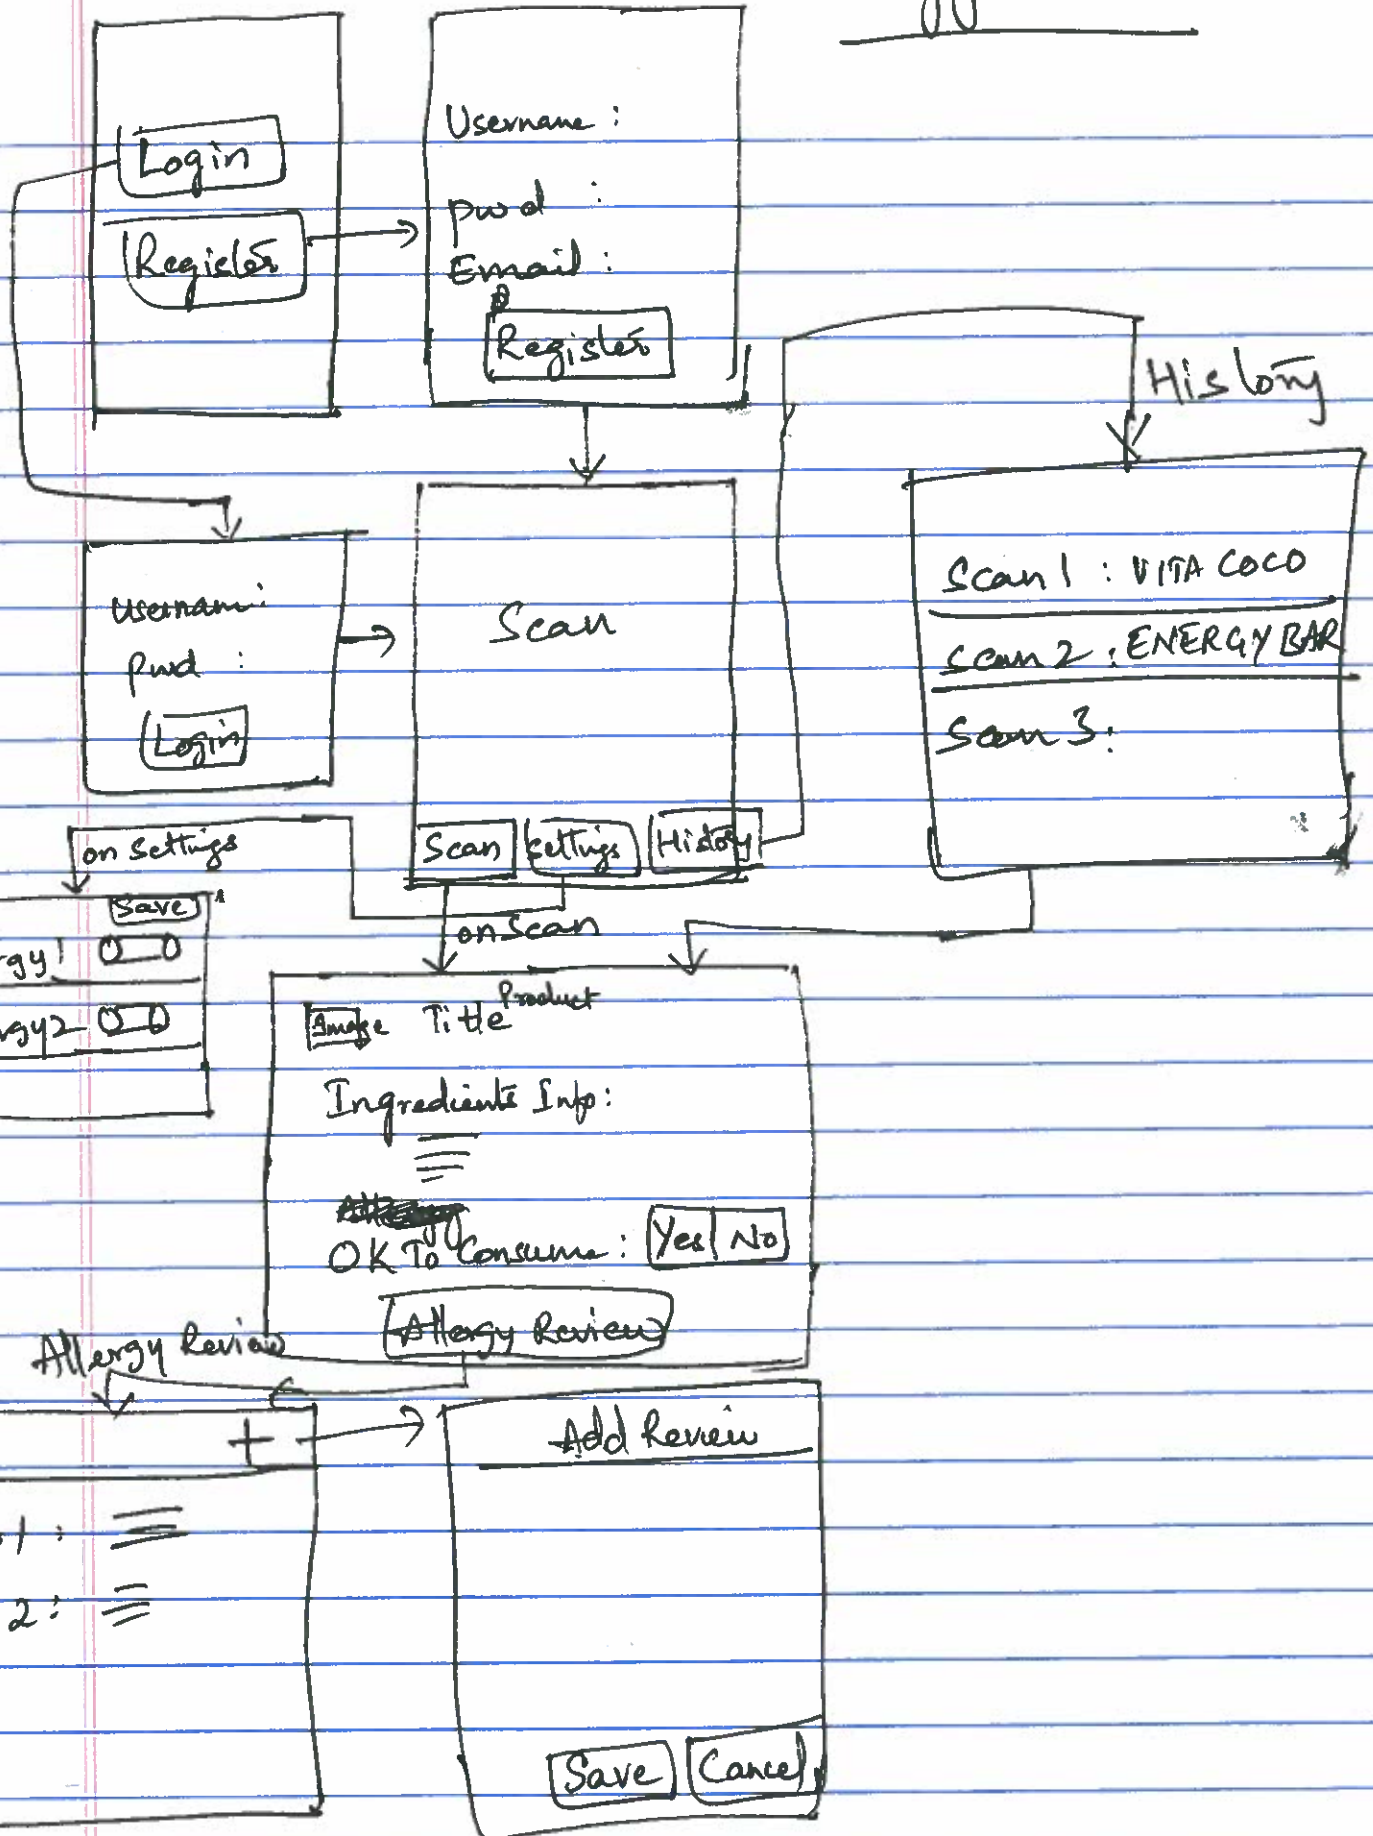 Login
Register
Username :
pwd :
Email :
Register
History
Username:
pwd :
Login
Scan
Scan
Settings
History
Scan 1 : VITA COCO
Scan 2 : ENERGY BAR
Scan 3:
on Settings
Save
rgy1
rgy2
on Scan
Image Title Product
Ingredients Info:
OK To Consume : Yes No
Allergy Review
Allergy Review
+
1 :
2 :
Add Review
Save
Cancel